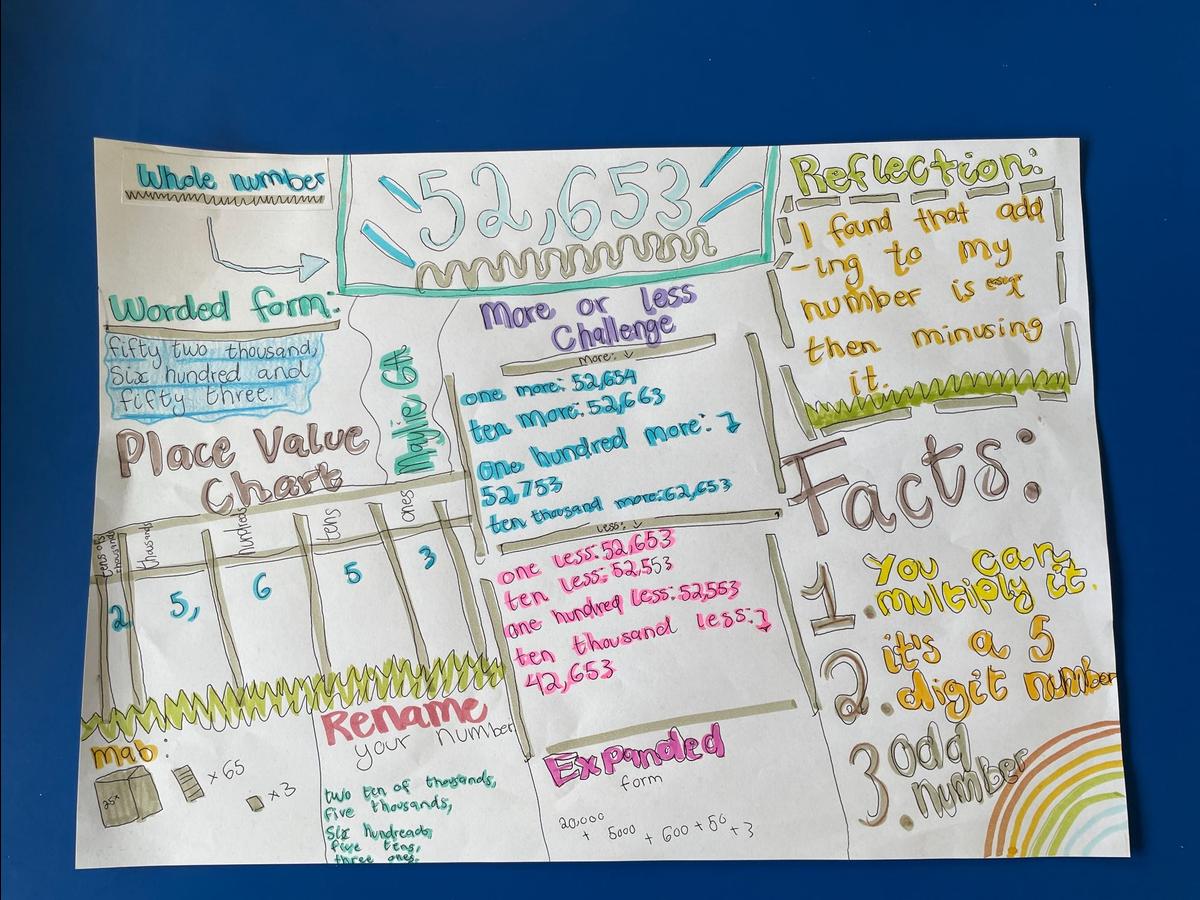 Whole number
52,653
Worded form:
fifty two thousand,
Six hundred and
fifty three.
Maylie 6A
Place Value
Chart
tens of
thousands
thousands
hundreds
tens
ones
2
5,
6
5
3
Mab:
25x
x 65
x 3
Rename
your number
two ten of thousands,
five thousands,
Six hundreads,
five tens,
three ones.
More or less
Challenge
More: ↓
one more: 52,654
ten more: 52,663
one hundred more:
52,753
ten thousand more: 62,653
Less: ↓
one less: 52,653
ten less: 52,553
one hundred less: 52,553
ten thousand less:
42,653
Expanded
form
20,000
+ 5000 + 600 + 50 + 3
Reflection:
I found that add
-ing to my
number is
then minusing
it.
Facts:
1. You can
multiply it.
2. it's a 5
digit number
3. Odd
number